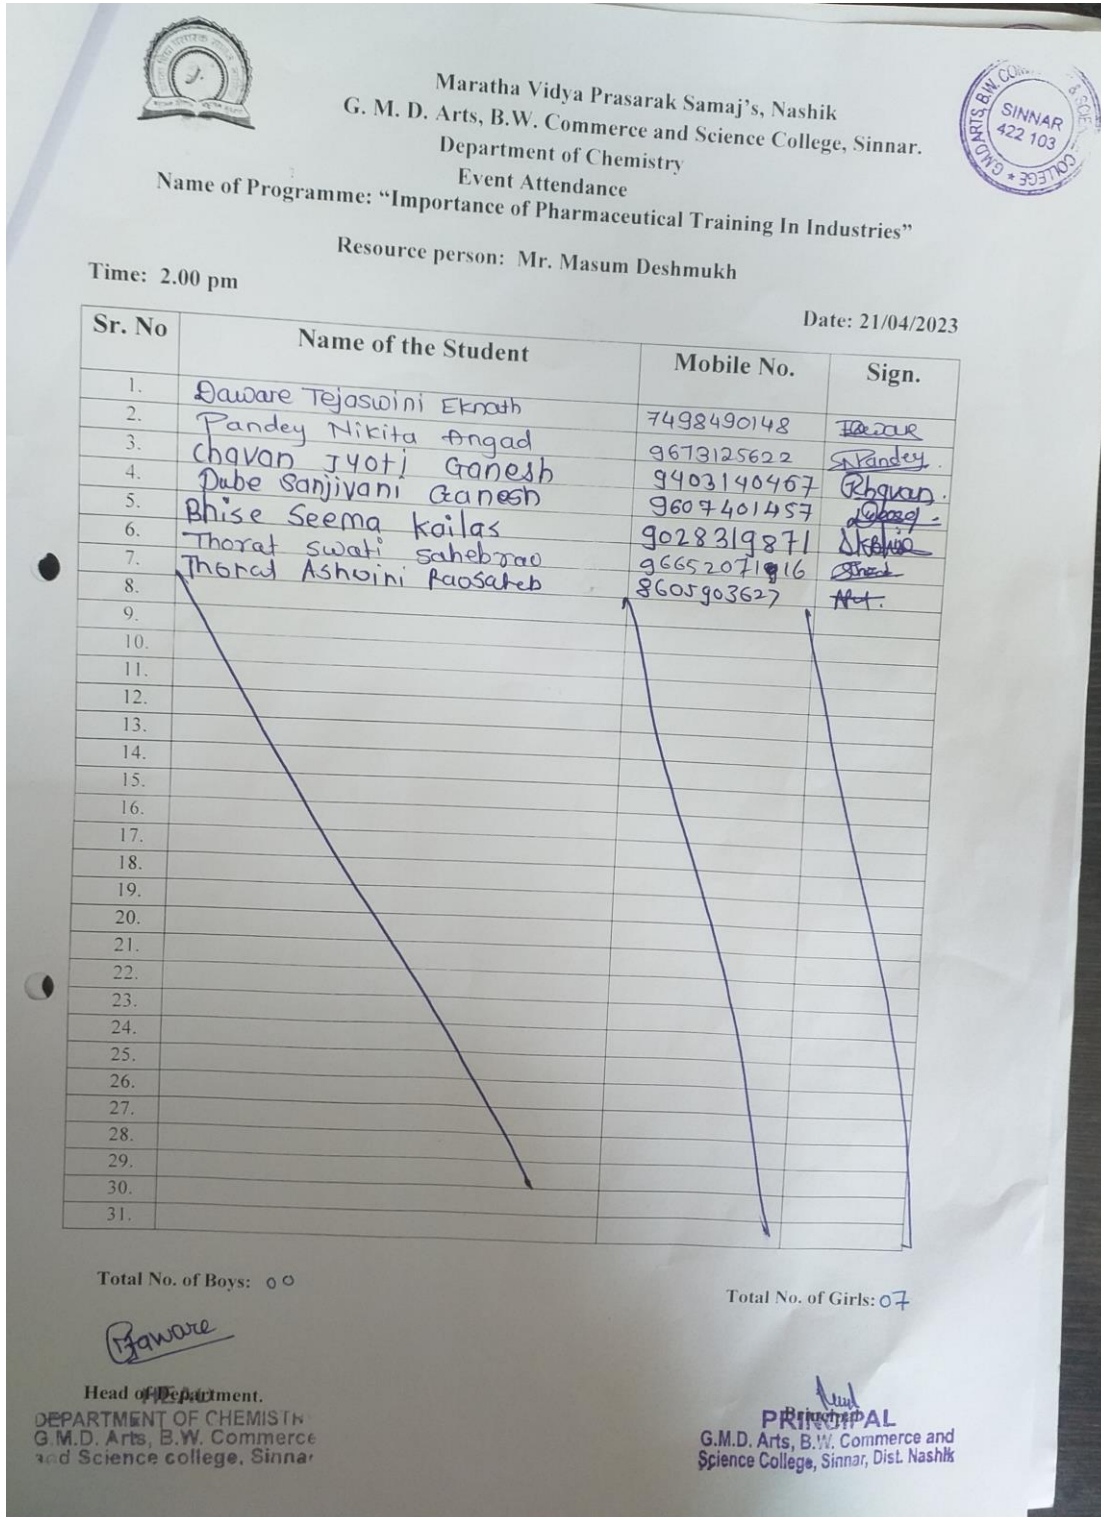 Maratha Vidya Prasarak Samaj's, Nashik
G. M. D. Arts, B.W. Commerce and Science College, Sinnar.
Department of Chemistry
Event Attendance
Name of Programme: “Importance of Pharmaceutical Training In Industries”
Resource person: Mr. Masum Deshmukh
SINNAR
422 103
Time: 2.00 pm
Date: 21/04/2023
Sr. No Name of the Student Mobile No. Sign.
1. Daware Tejaswini Eknath 7498490148
2. Pandey Nikita Angad 9673125622 Pandey.
3. Chavan Jyoti Ganesh 9403140467 Chavan.
4. Dube Sanjivani Ganesh 9607401457
5. Bhise Seema Kailas 9028319871
6. Thorat Swati Sahebrao
7. Thorat Ashwini Raosaheb 8605903627
8.
9.
10.
11.
12.
13.
14.
15.
16.
17.
18.
19.
20.
21.
22.
23.
24.
25.
26.
27.
28.
29.
30.
31.
Total No. of Boys: 00
Total No. of Girls: 07
Daware
Head of Department.
DEPARTMENT OF CHEMISTR
G.M.D. Arts, B.W. Commerce
and Science college, Sinnar
PRINCIPAL
G.M.D. Arts, B.W. Commerce and
Science College, Sinnar, Dist. Nashik